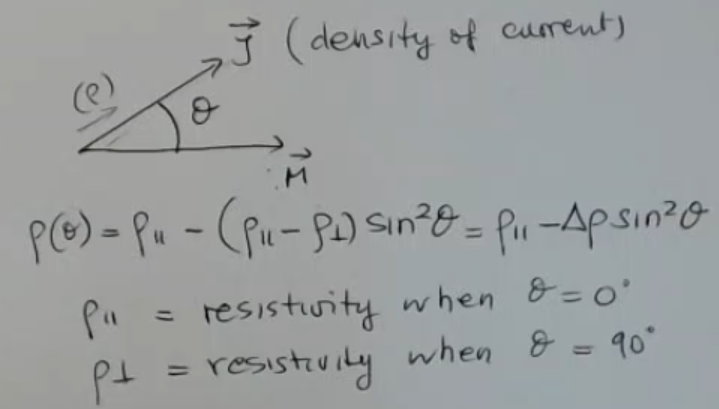 J⃗ (density of current)
(ρ)
θ
M⃗
ρ(θ) = ρ₁₁ - (ρ₁₁ - ρ⊥) sin²θ = ρ₁₁ - Δρ sin²θ
ρ₁₁ = resistivity when θ = 0°
ρ⊥ = resistivity when θ = 90°